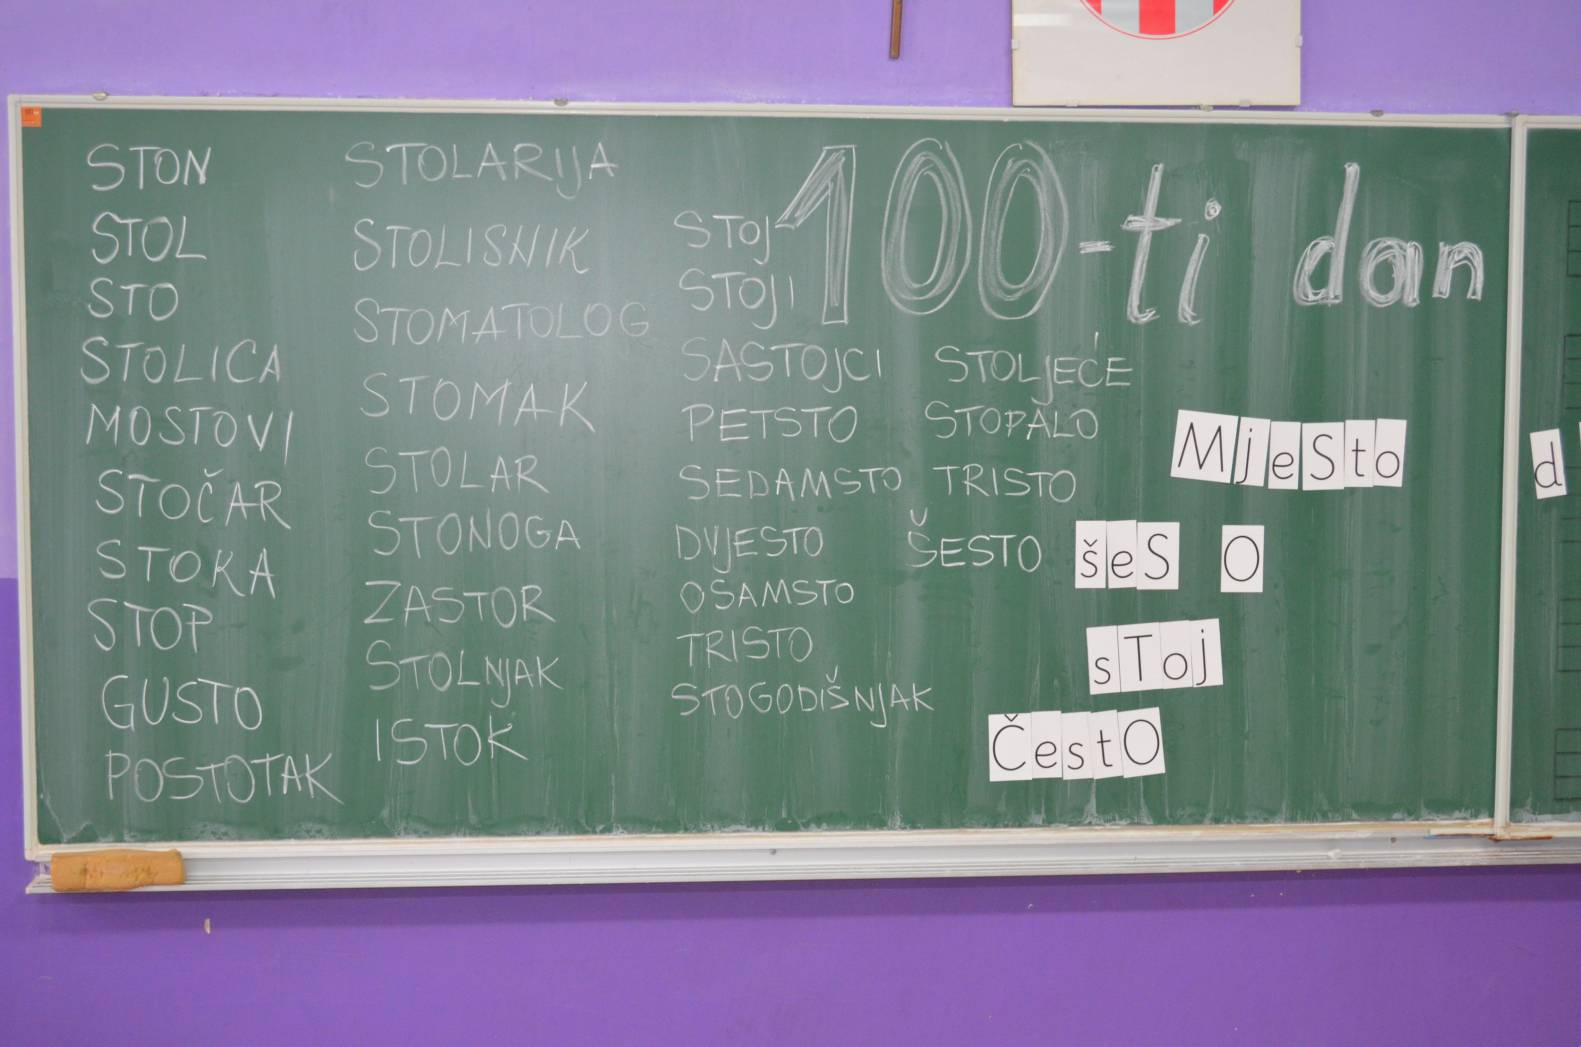 100-ti dan
STON
STOL
STO
STOLICA
MOSTOVI
STOČAR
STOKA
STOP
GUSTO
POSTOTAK
STOLARIJA
STOLISNIK
STOMATOLOG
STOMAK
STOLAR
STONOGA
ZASTOR
STOLNJAK
ISTOK
STOJ
STOJI
SASTOJCI
PETSTO
SEDAMSTO
DVJESTO
OSAMSTO
TRISTO
STOGODIŠNJAK
STOLJEĆE
STOPALO
TRISTO
ŠESTO
MjeSto
šeS O
sToj
ČestO
d